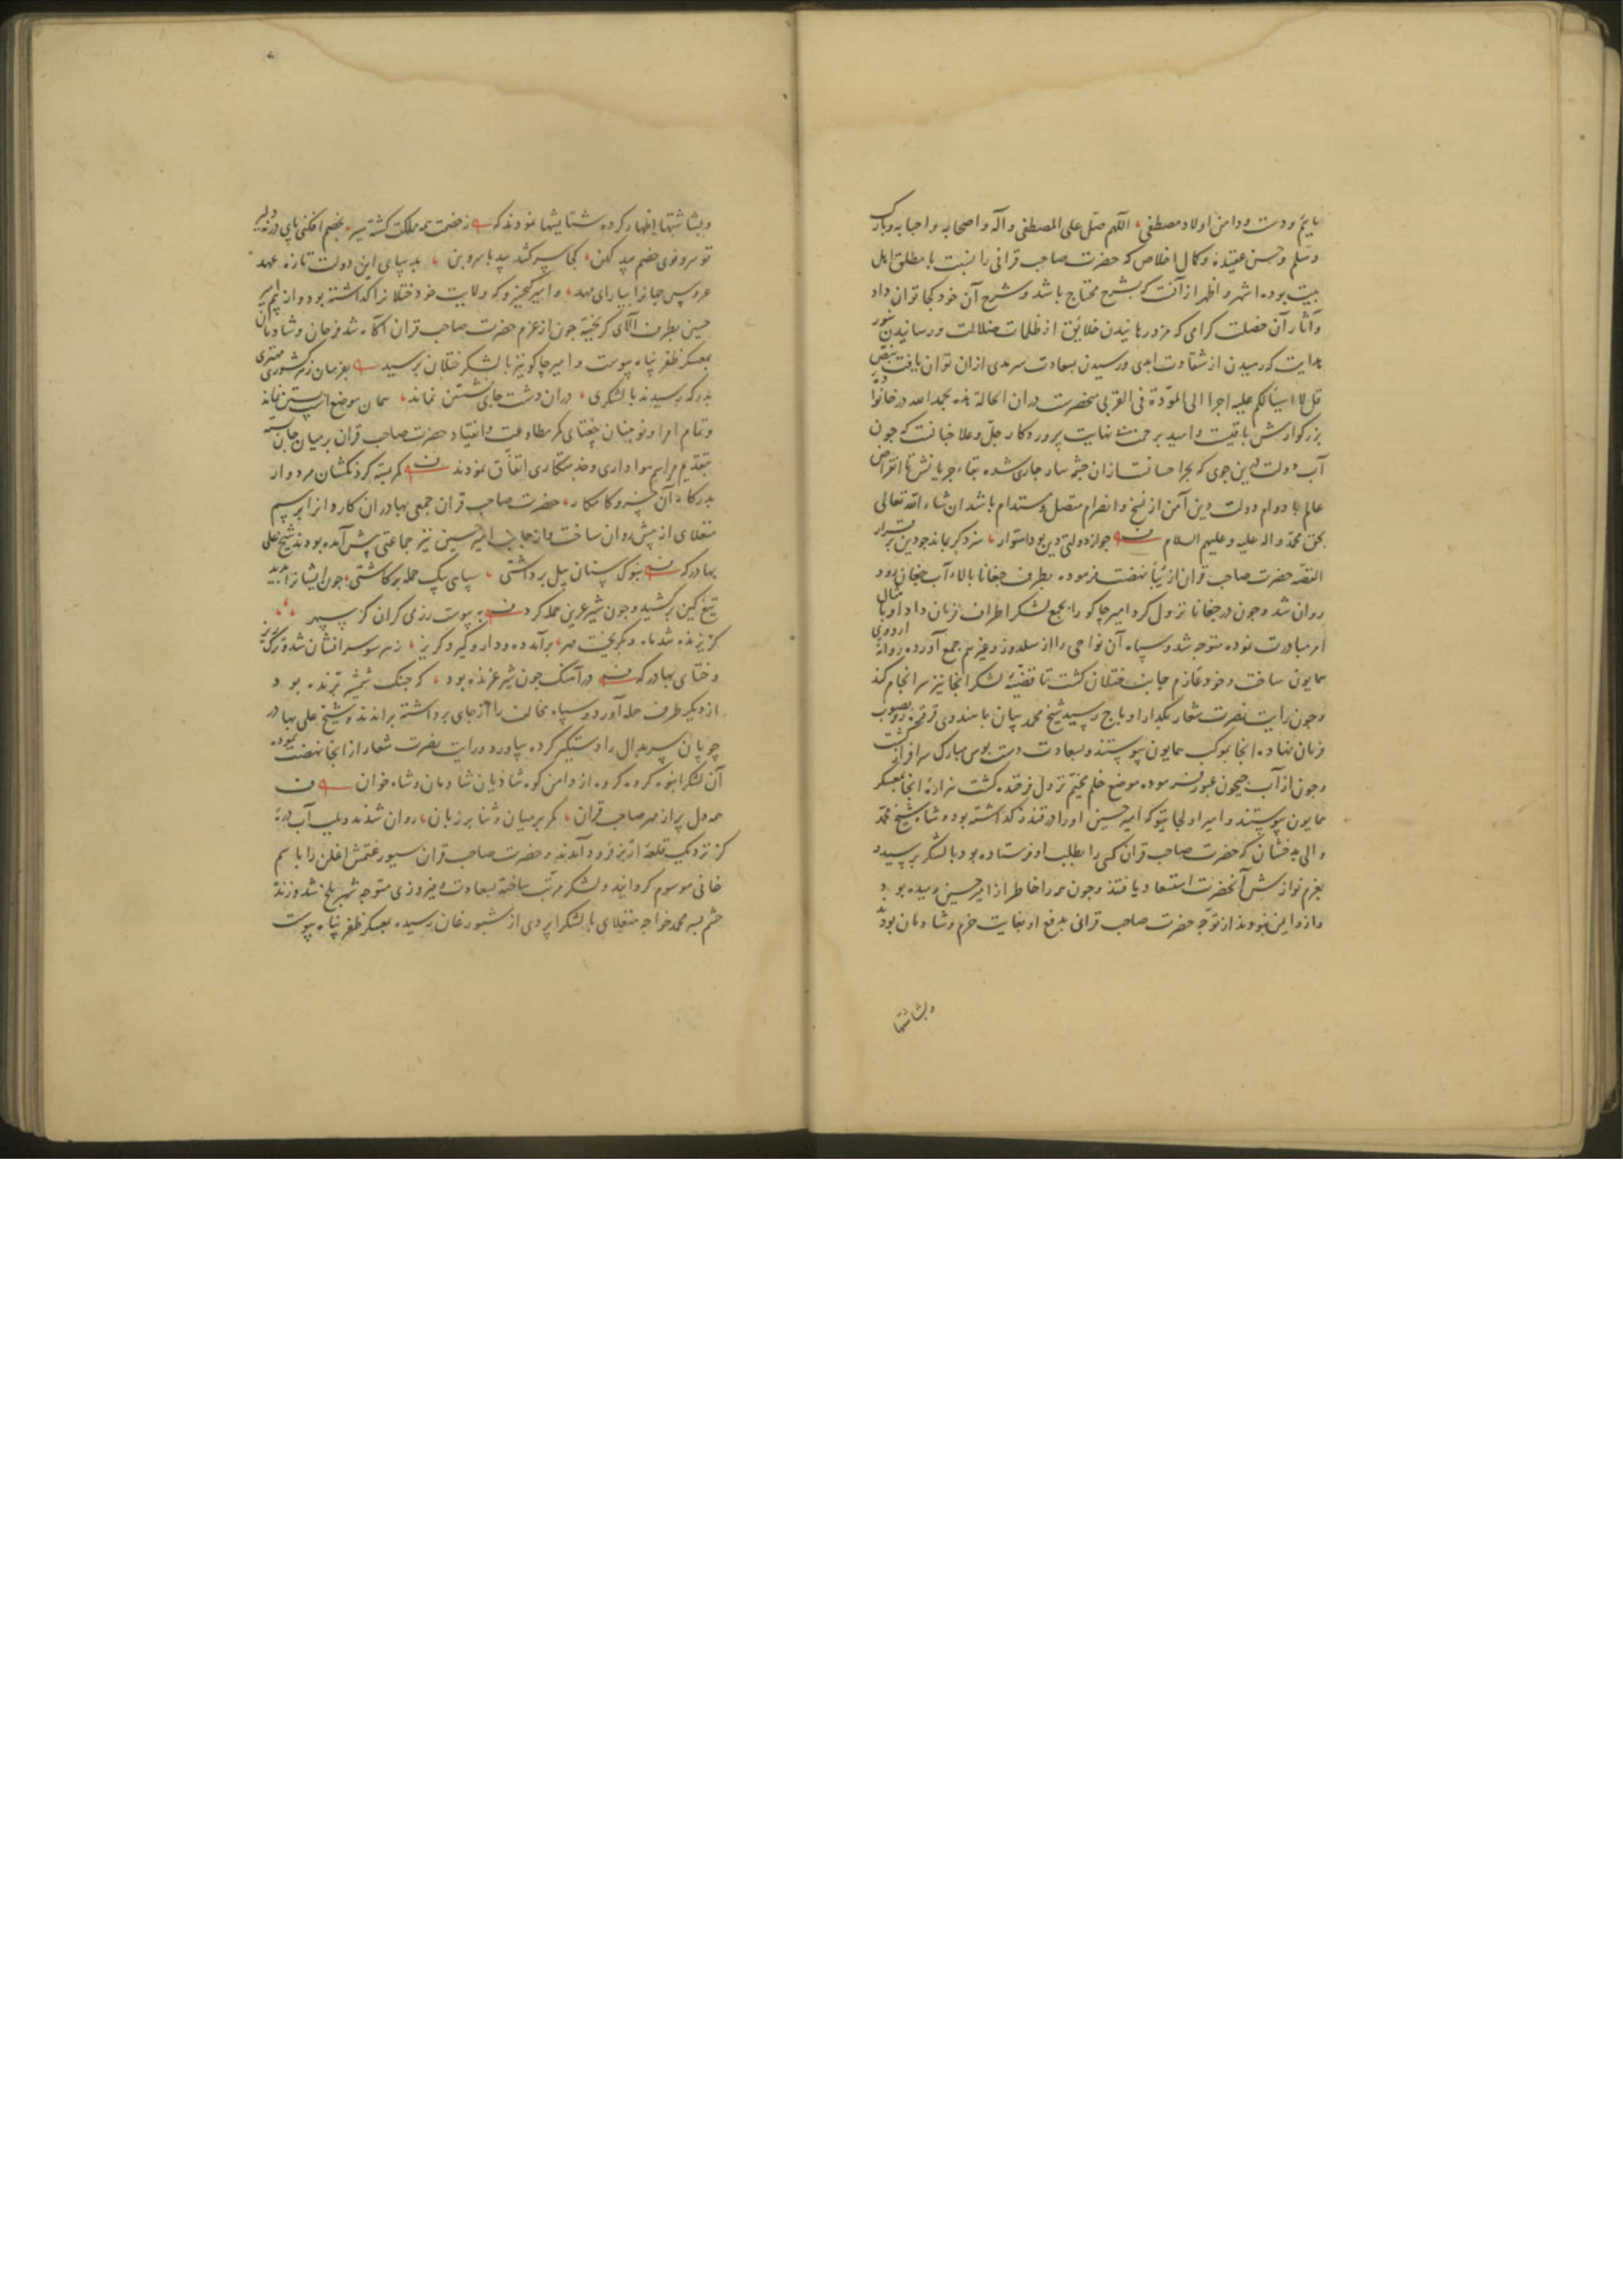 مایم و دست و دامن اولاد مصطفی اللهم صل علی المصطفی و آله و اصحابه و احبابه و بارک
و سلم و حسن عقیده و کمال اخلاص که حضرت صاحب قرانی را نسبت با مطلق اهل
بیت بوده اشهر و اظهر از آنست که بشرح محتاج باشد و شرح آن خود کجا توان داد
و آثار آن خصلت کرامی که مزد رهانیدن خلایق از ظلمات ضلالت و رسانیدن بنور
هدایت که رهیدن از شقاوت ابدی و رسیدن بسعادت سرمدی ازان توان یافت بنص
قل لا اسئالکم علیه اجرا الی المودة فی القربی منحصرست دران الحالة هذه بحمد الله در خانواده
بزرکوارش باقیست و امید برحمت بی نهایت پروردکار جل و علا چنانست که جون
آب دولت دین جوی که بحر احسانست ازان چشمه سار جاری شده بقاء جریانش تا انقراض
عالم با دوام دولت دین آمن از نسخ و انصرام متصل و مستدام باشد ان شاء الله تعالی
بحق محمد و اله علیه و علیهم السلام جو از دولتی دین بود استوار سزد کر بماند جو دین برقرار
القصه حضرت صاحب قران از نهضت فرموده بطرف جغانا بالاء آب جغان رود
روان شد و جون در جغانا نزول کرد امیر جاکو را بجمع لشکر اطراف فرمان داد او با مثال
امر مبادرت نموده متوجه شد و سپاه آن نواحی را از سلدوز و غیرهم جمع آورده روانهٔ اردوی
همایون ساخت و خود عازم جانب ختلان کشت تا قضیهٔ لشکر انجا نیز سرانجام کند
و جون رایت نصرت شعار بکدار اوباج رسید شیخ محمد بیان با هندوی قرقره رو بصوب
فرمان نهاده انجا بموکب همایون پیوستند و بسعادت دست بوس مبارک سرافراز کشت
و جون از آب جیحون عبور فرموده موضع خلم مخیم نزول فرخنده کشت هزارهٔ انجا بمعسکر
همایون پیوستند و امیر اولجایتو که امیر حسین او را در قندز کداشته بود و شاه شیخ محمد
والی بدخشان که حضرت صاحب قران کسی را بطلب او فرستاده بود با لشکر برسید
بعزم نوازش آنحضرت استسعاد یافتند و جون همه را خاطر از امیر حسین رمیده بود
و ازو ایمن نبودند از توجه حضرت صاحب قرانی بدفع او بغایت خرم و شادمان بودند
وبشاشتها
وبشاشتها اظهار کرده ستایشها نمودند که ز خصمت همه مملکت کشته سیر بخصم افکنی پای درنه دلیر
تو سرو نوی خصم بید کهن کجا سر کشد بید با سروبن به پای این دولت تازه عهد
عروس جهانرا بیارای مهد و امیر کیخسرو که ولایت خود ختلانرا کذاشته بود و از بیم امیر
حسین بطرف آلای کریخته جون از عزم حضرت صاحب قران اکاه شد فرحان و شادمان
بمعسکر ظفر پناه پیوست و امیر جاکو نیز با لشکر ختلان برسید بفرمان ز هر کشوری مهتری
بدرکه رسیدند با لشکری دران دشت جای نشستن نماند همان موضع اسپ بستن نماند
و تمام امرا و نوینان جغتای کمر مطاوعت و انقیاد حضرت صاحب قران بر میان جان بسته
بتقدیم مراسم هواداری و خدمتکاری اتفاق نمودند کمر بسته کردنکشان مردوار
بدرکاه آن خسرو کامکار حضرت صاحب قران جمعی بهادران کاردانرا برسم
منغلای از پیش روان ساخت و از جانب امیر حسین نیز جماعتی پیش آمده بودند شیخ علی
بهادر که بنوک سنان پیل برداشتی سپاهی بیک حمله برکاشتی جون ایشانرا بدید
تیغ کین برکشید و جون شیر عرین حمله کرد به پیوست رزمی کران کز سپهر
کریزنده شد ماه و بکریخت مهر برآمد ده و دار و کیر و کریز ز هر سو سرافشان شد و ترک ریز
و ختای بهادر که در آهنک جون شیر غرنده بود که جنک شمشیر برنده بود
از دیکر طرف حمله آورد و سپاه مخالف را از جای برداشته براندند و شیخ علی بهادر
جوپان سربدال را دستکیر کرده بیاورد و رایت نصرت شعار از انجا نهضت نموده
آن لشکر انبوه کروه کروه از دامن کوه شادیان شادمان و شاه خوان
همه دل پر از مهر صاحب قران کمر بر میان و ثنا بر زبان روان شدند و بلب آب درهٔ
کز نزدیک قلعهٔ ازبز فرود آمدند و حضرت صاحب قران سیورغتمش اغلن را باسم
خانی موسوم کردانید و لشکر مرتب ساخته بسعادت و فیروزی متوجه شهر بلخ شد و زنده
حشم پسر محمد خواجه منغلای با لشکر اپردی از شبورغان رسیده بمعسکر ظفر پناه پیوست